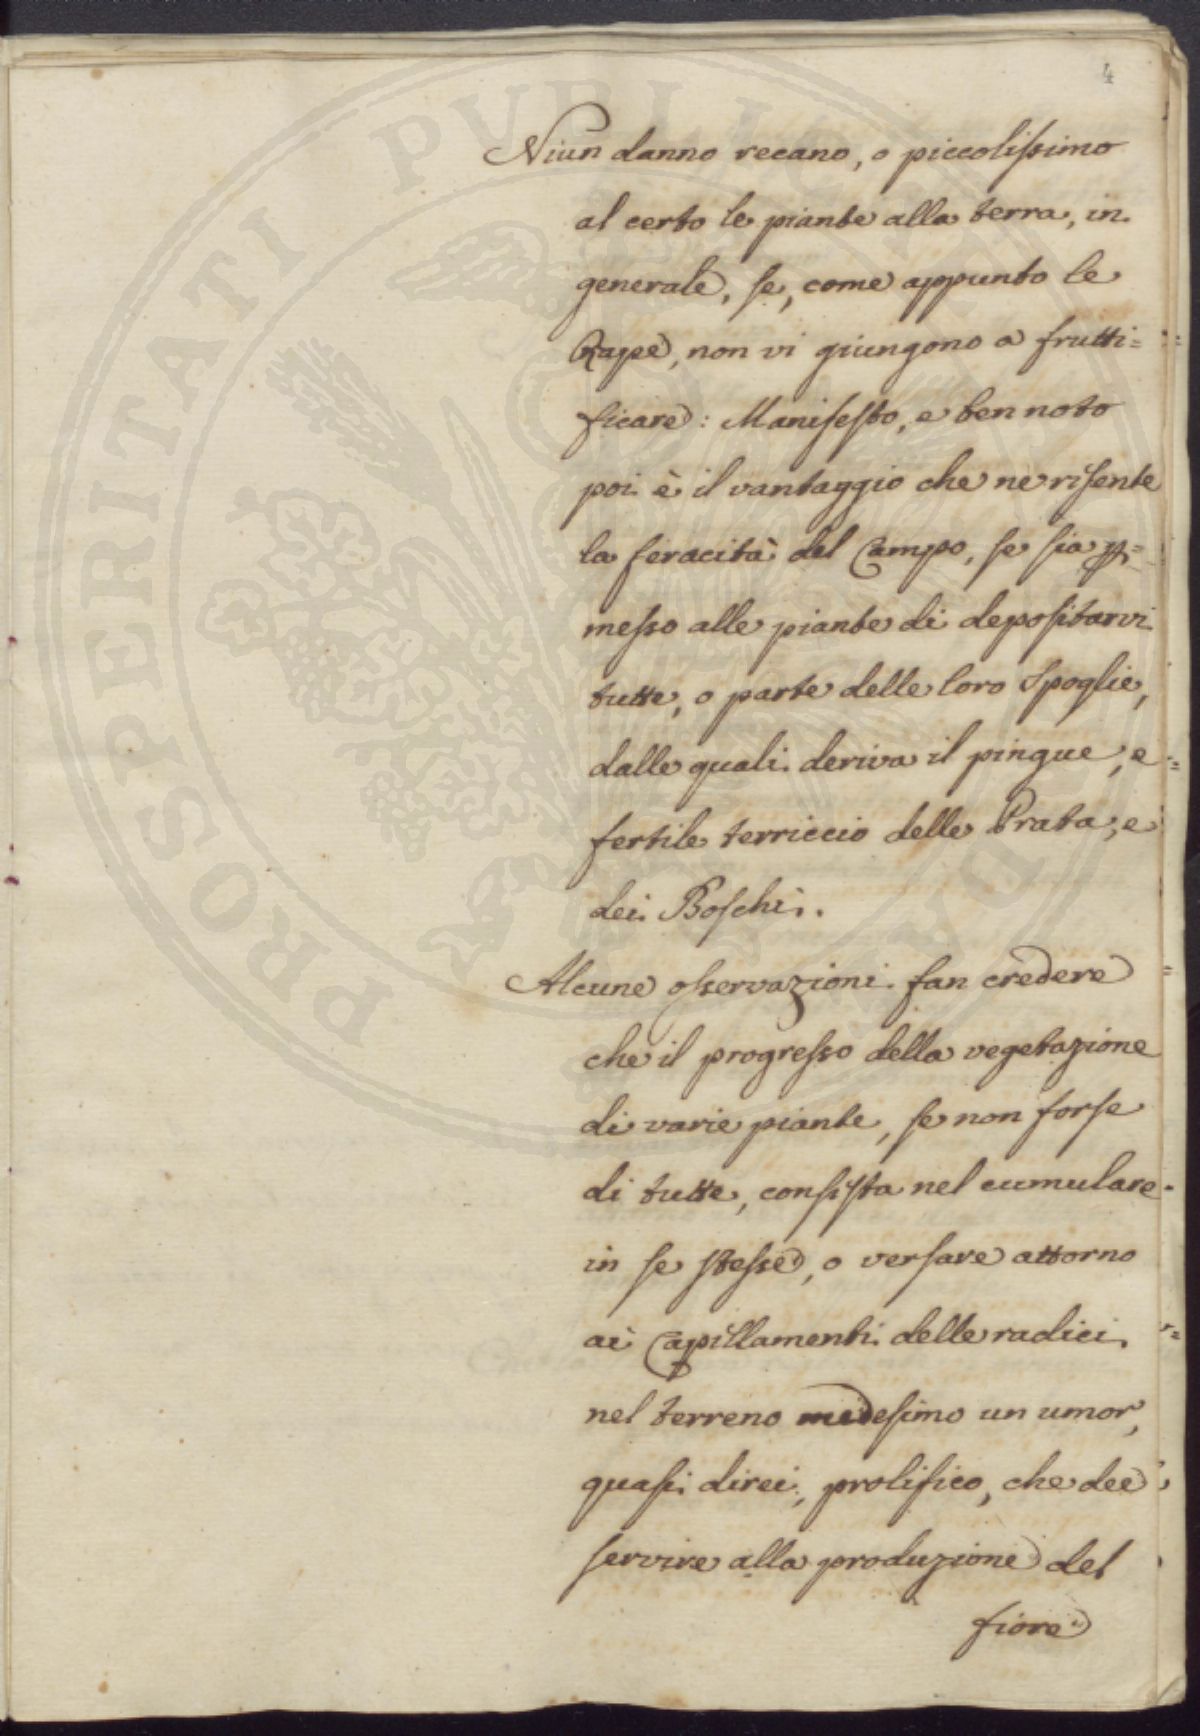 4
Niun danno recano, o piccolissimo
al certo le piante alla terra, in
generale, se, come appunto le
Rape, non vi giungono a frutti=
ficare: Manifesto, e ben noto
poi è il vantaggio che ne risente
la feracità del Campo, se sia p=
messo alle piante di depositarvi
tutte, o parte delle loro Spoglie,
dalle quali deriva il pingue, e
fertile terriccio delle Prata, e
dei Boschi.
Alcune osservazioni fan credere
che il progresso della vegetazione
di varie piante, se non forse
di tutte, consista nel cumulare
in se stesse, o versare attorno
ai Capillamenti delle radici
nel terreno medesimo un umor,
quasi direi, prolifico, che dee
servire alla produzione del
fiore
PROSPERITATI PUBLICAE